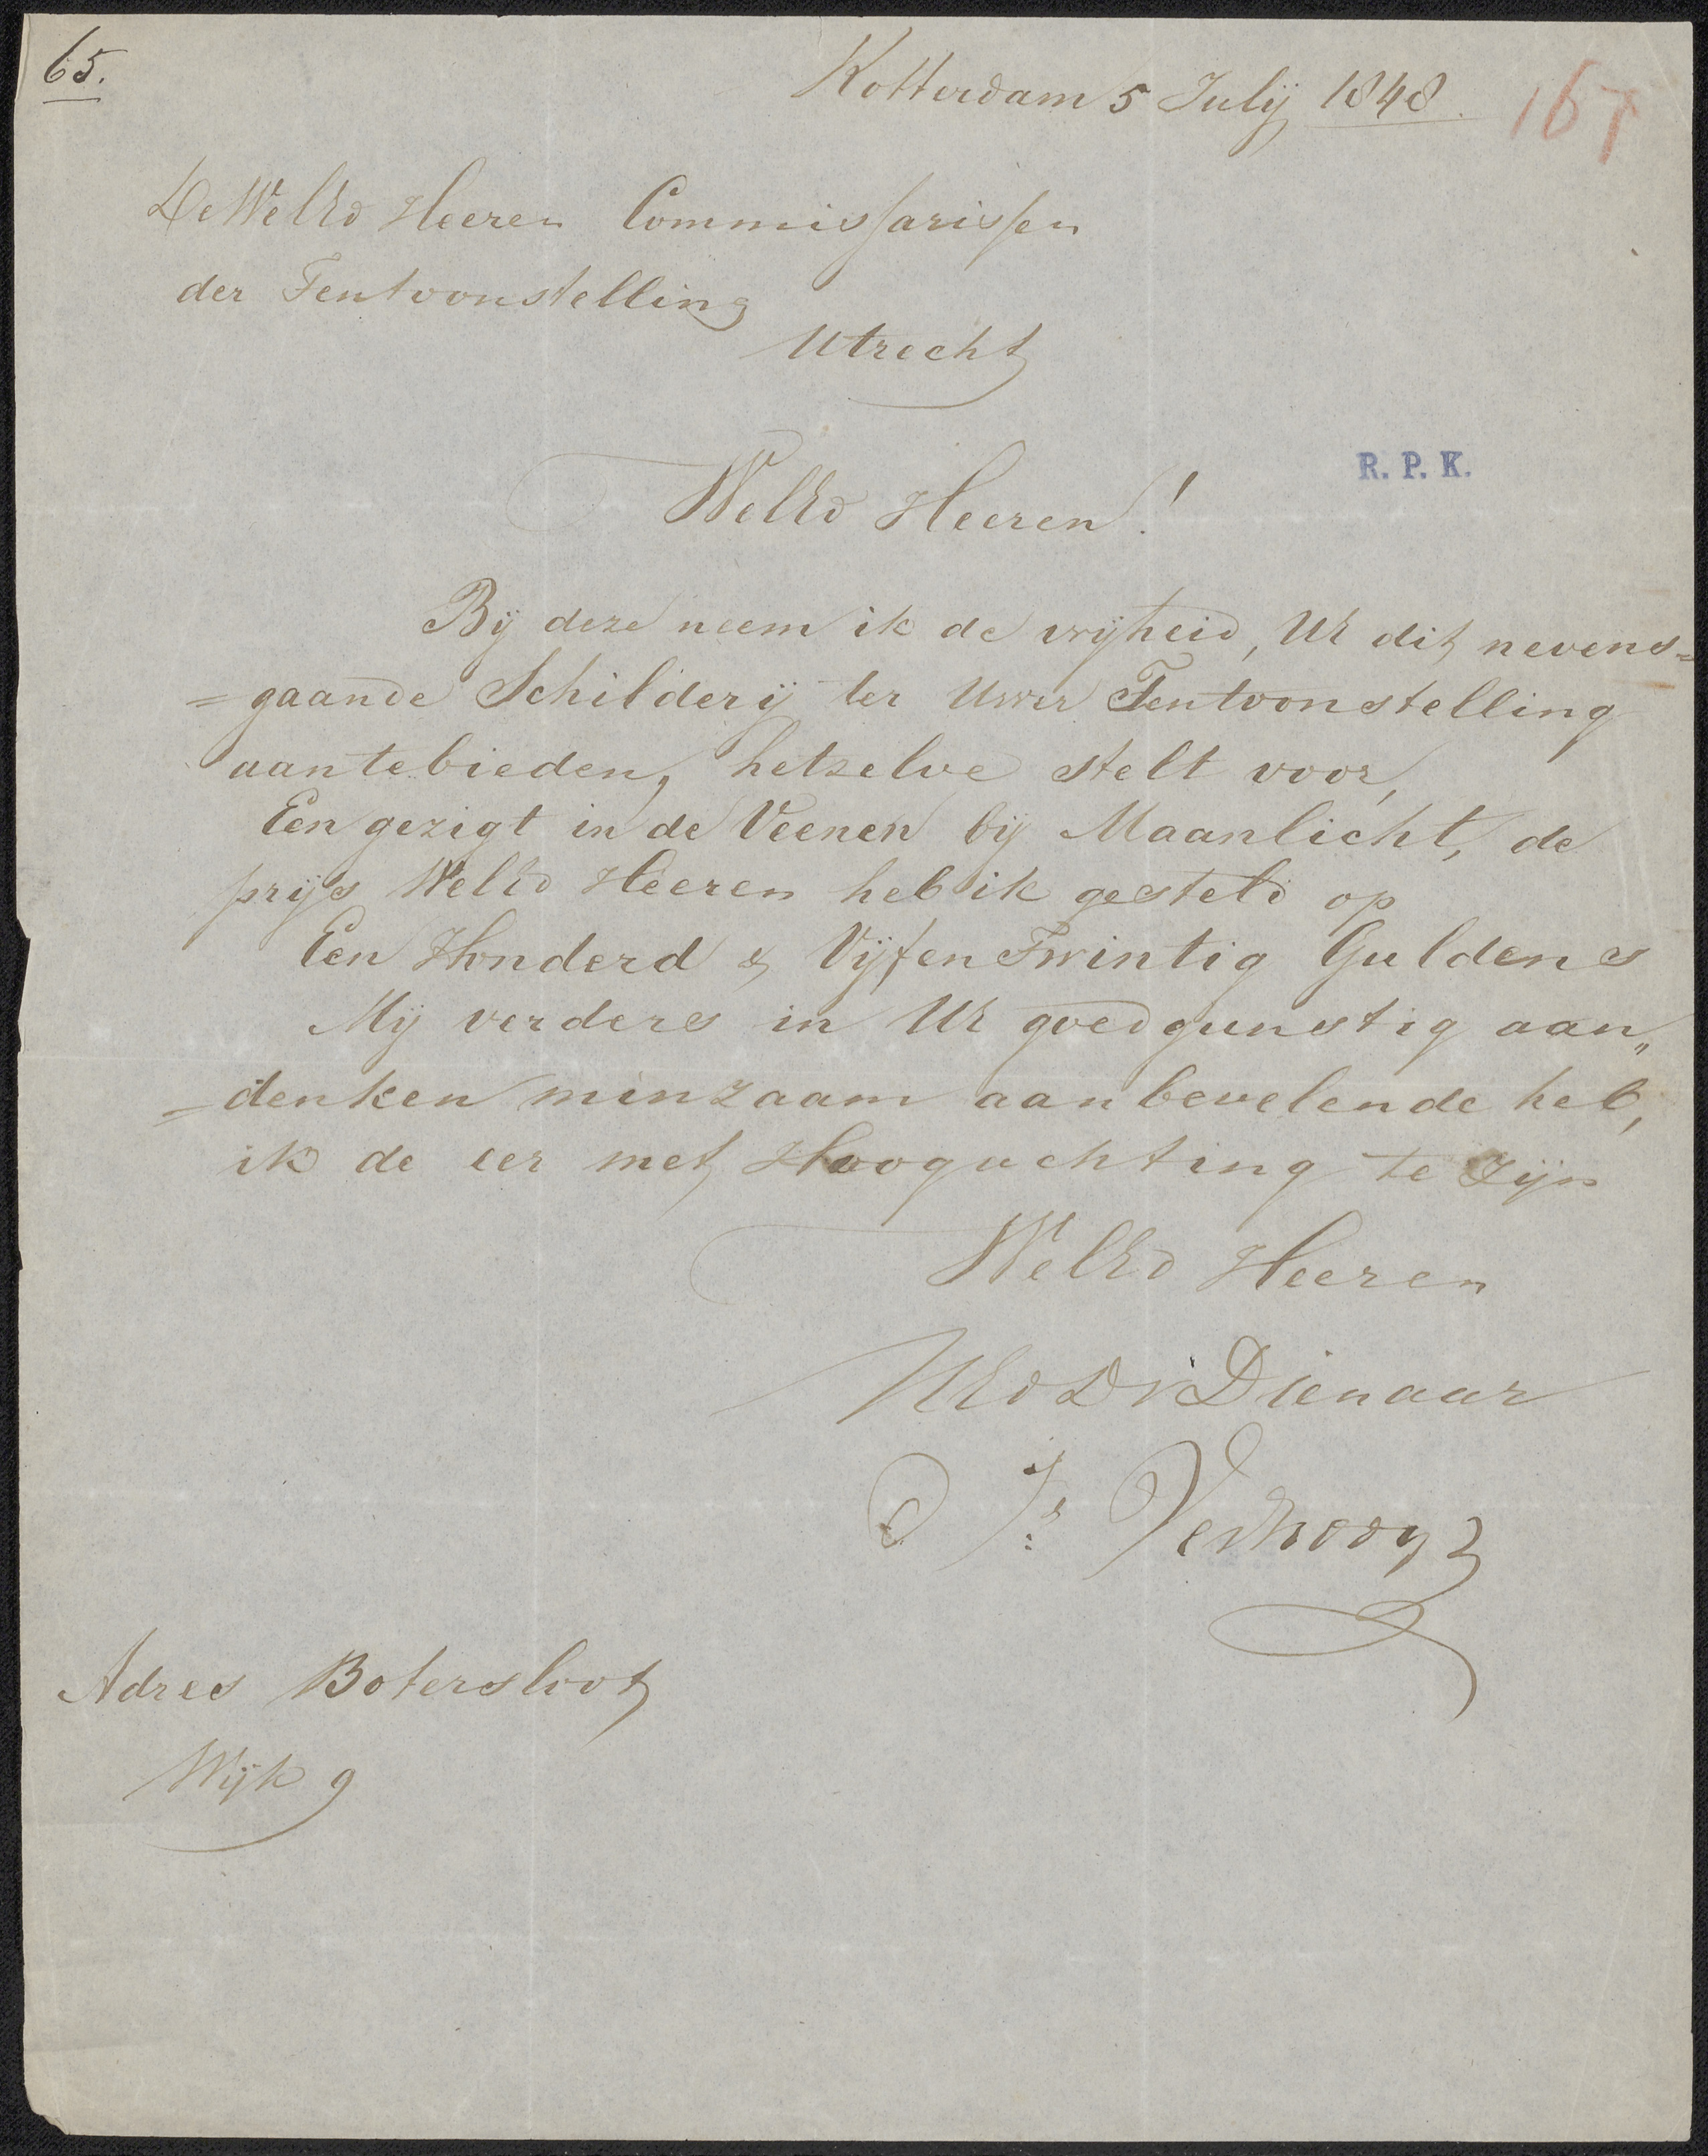 65.
Rotterdam 5 Julij 1848.
167
De WelEd Heeren Commissarissen
der Tentoonstelling
Utrecht
R. P. K.
WelEd Heeren!
Bij deze neem ik de vrijheid, UE dit nevens=
=gaande Schilderij ter Uwer Tentoonstelling
aantebieden, hetzelve stelt voor,
Een gezigt in de Veenen bij Maanlicht, de
prijs WelEd Heeren heb ik gesteld op
Een Honderd & Vijfen Twintig Guldens
Mij verders in UE goedgunstig aan„
=denken minzaam aanbevelende heb,
ik de eer met Hoogachting te zijn
WelEd Heeren
UEd Dr Dienaar
Verhoog
Adres Botersloot
Wijk 9